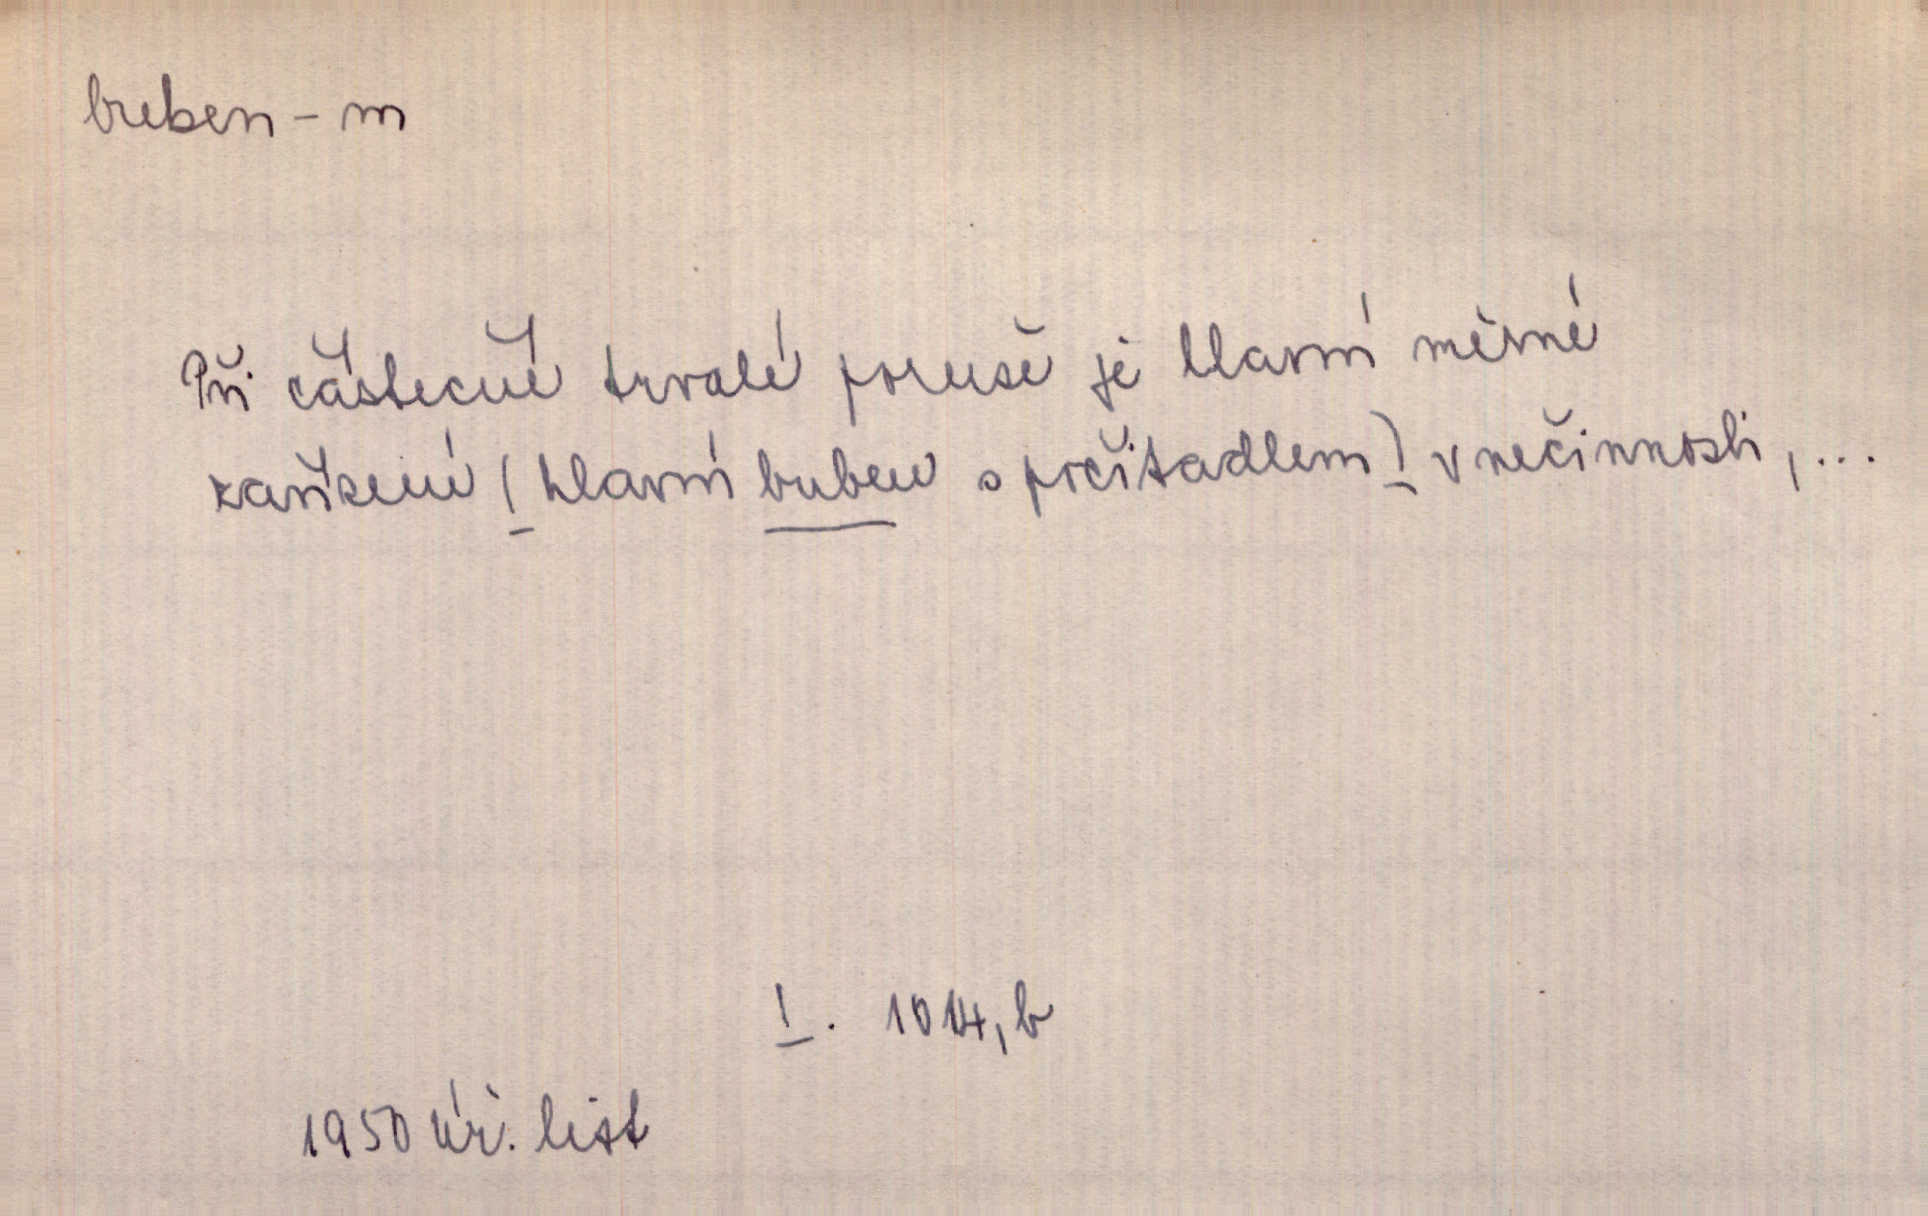 buben - m
Při částečné trvalé poruše je hlavní měrné
zařízení (hlavní buben s počítadlem) v nečinnosti, ...
I. 1014, b
1950 Úř. list